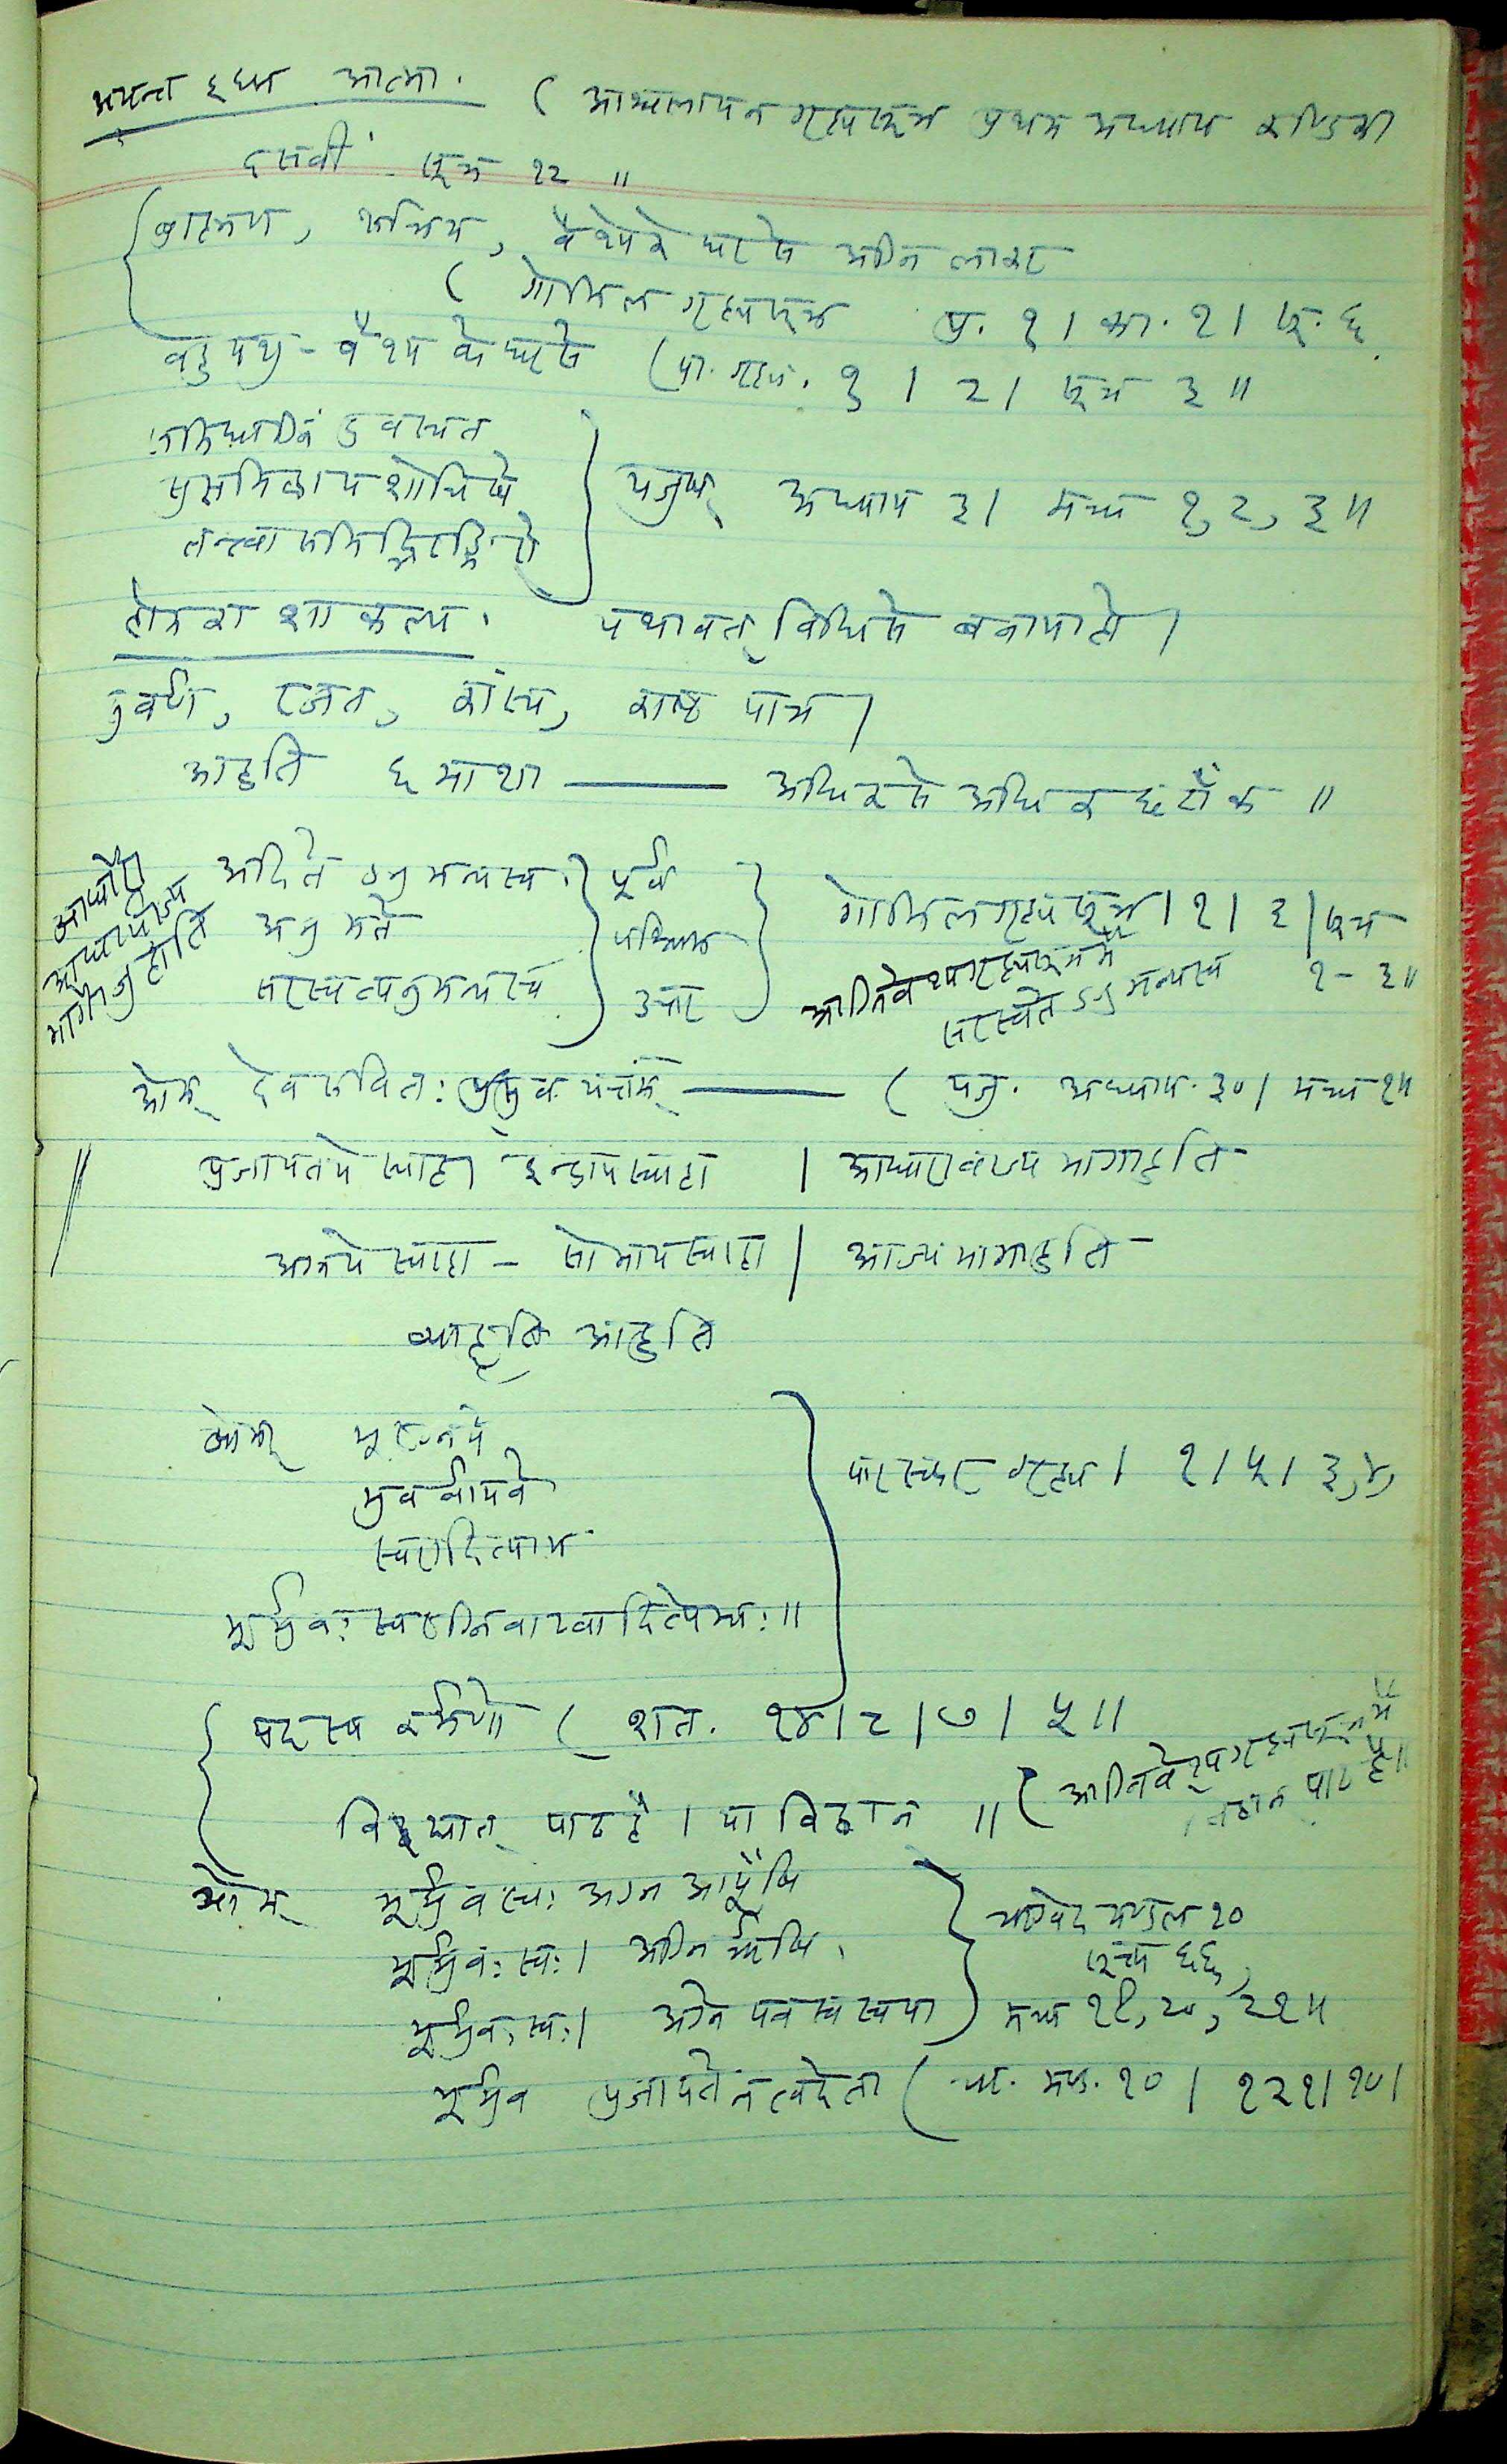 अयन्त इध्म आत्मा. ( आश्वलायन गृह्यसूत्र प्रथम अध्याय कण्डिका
दसवीं सूत्र १२ ॥
ब्राह्मण, क्षत्रिय, वैश्यके घरसे अग्नि लाकर
( गोभिल गृह्यसूत्र प्र. १ । का. १ । सू. ६
बहुपशु - वैश्य के घरसे (पा. गृह्य. १ । २ । सूत्र ३ ॥
समिधाग्निं दुवस्यत
सुसमिद्धाय शोचिषे
तन्त्वा समिद्भिरङ्गिरो
यजुष् अध्याय ३ । मन्त्र १, २, ३ ॥
होमका शाकल्य . यथावत् विधिसे बनायाहो ।
सुवर्ण, रजत, कांस्य, काष्ठ पात्र ।
आहुति ६ माशा — अधिकसे अधिक छटाँक ॥
अदिते ऽनुमन्यस्व . पूर्व
अनुमते पश्चिम
सरस्वत्यनुमन्यस्व उत्तर
गोभिलगृह्यसूत्र । १ । ३ । सूत्र
१ - ३ ॥
आग्निवेश्यगृह्यसूत्रमें
सरस्वते ऽनुमन्यस्व
ओम् देव सवितः प्रसुव यज्ञम् — ( यजु. अध्याय. ३० । मन्त्र १॥
प्रजापतये स्वाहा इन्द्रायस्वाहा | आघारावाज्य भागाहुति
अग्नये स्वाहा - सोमायस्वाहा | आज्यभागाहुति
व्याहृति आहुति
ओम् भूरग्नये
भुवर्वायवे
स्वरादित्याय
भूर्भुवः स्वरग्निवाय्वादित्येभ्यः ॥
पारस्कर गृह्य । १ । ५ । ३,४,
यदस्य कर्मणो ( शत. १४ । ९ । ७ । ५ ॥
विद्यात् पाठ है । या विद्वान ॥ ( आग्निवेश्यगृह्यसूत्रमें
विद्वान पाठ है ॥
ओम् भूर्भुवः स्वः अग्न आयूंषि
भूर्भुवः स्वः । अग्निर्ऋषि .
भूर्भुवः स्वः । अग्ने पवस्व स्वपा
ऋग्वेद मण्डल १०
सूक्त ६६,
मन्त्र १९, २०, २१॥
भूर्भुव प्रजापते न त्वदेता ( ऋ. मण्ड. १० । १२१ । १० ।